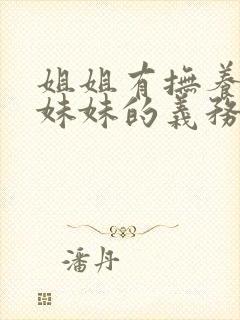 姐姐有撫養
妹妹的義務
潘丹